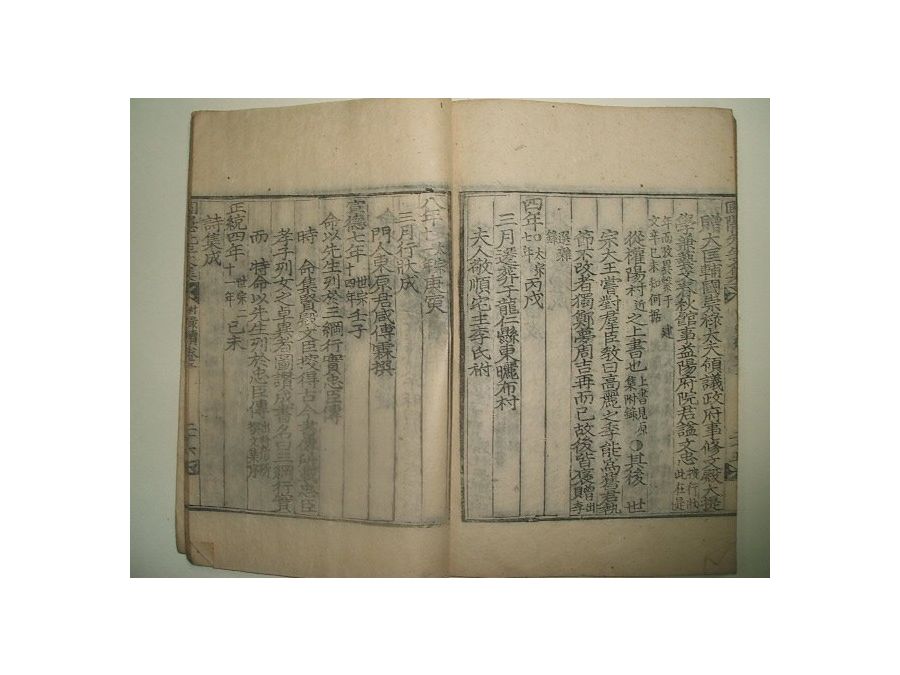 贈大匡輔國崇祿大夫領議政府事修文殿大提
學兼藝文春秋館事益陽府院君謚文忠 按行狀此在是
年而改異系于文辛巳未知何據 建
從權陽村近之上書也 上書見原集附錄 ○其後 世
宗大王嘗對羣臣敎曰高麗之季能爲舊君執
節不改者獨鄭夢周吉再而已故後皆褒贈 出李
選雜錄
四年 ○太宗七年 丙戌
三月遷葬于龍仁縣東曬布村
夫人敬順宅主李氏祔
八年 庚寅
三月行狀成
門人東原君咸傅霖撰
宣德七年 世宗十四年 壬子
命以先生列於三綱行實忠臣傳
時 命集賢殿文臣 得古今書 忠臣
孝子列女之卓異者圖讚成書名曰三綱行實
而 特命以先生列於忠臣傳
正統四年 世宗二十一年 己未
詩集成